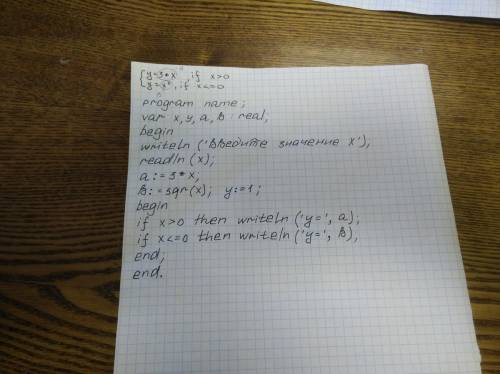 {y=3*x, if x>0
y=x², if x<=0
a
B
program name;
var x,y,a,B: real;
begin
writeln ('Введите значение x');
readln (x);
a:=3*x;
B:=sqr(x); y:=1;
begin
if x>0 then writeln ('y=', a);
if x<=0 then writeln ('y=', B);
end;
end.